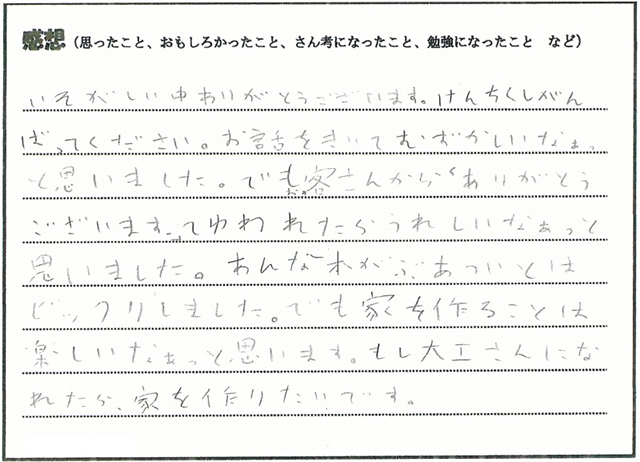 感想（思ったこと、おもしろかったこと、さん考になったこと、勉強になったこと　など）
いそがしい中ありがとうございます。けんちくしがん
ばってください。お話をきいてむずかしいなぁっ
と思いました。でもお客さんから“ありがとう
ございます„ってゆわれたらうれしいなぁっと
思いました。あんな木がぶあついとは
ビックリしました。でも家を作ることは
楽しいなぁっと思います。もし大工さんにな
れたら、家を作りたいです。